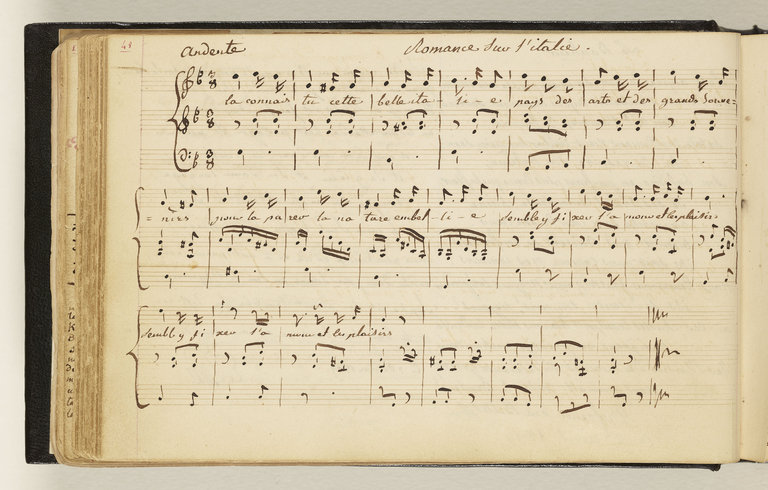 48
andente Romance sur l'italie.
la connais tu cette belle ita - li - e pays des arts et des grands souve =
= nirs pour la parer la na ture embel - li - e semble y fi xer l'a mour et les plaisirs
semble y fi xer l'a mour et les plaisirs